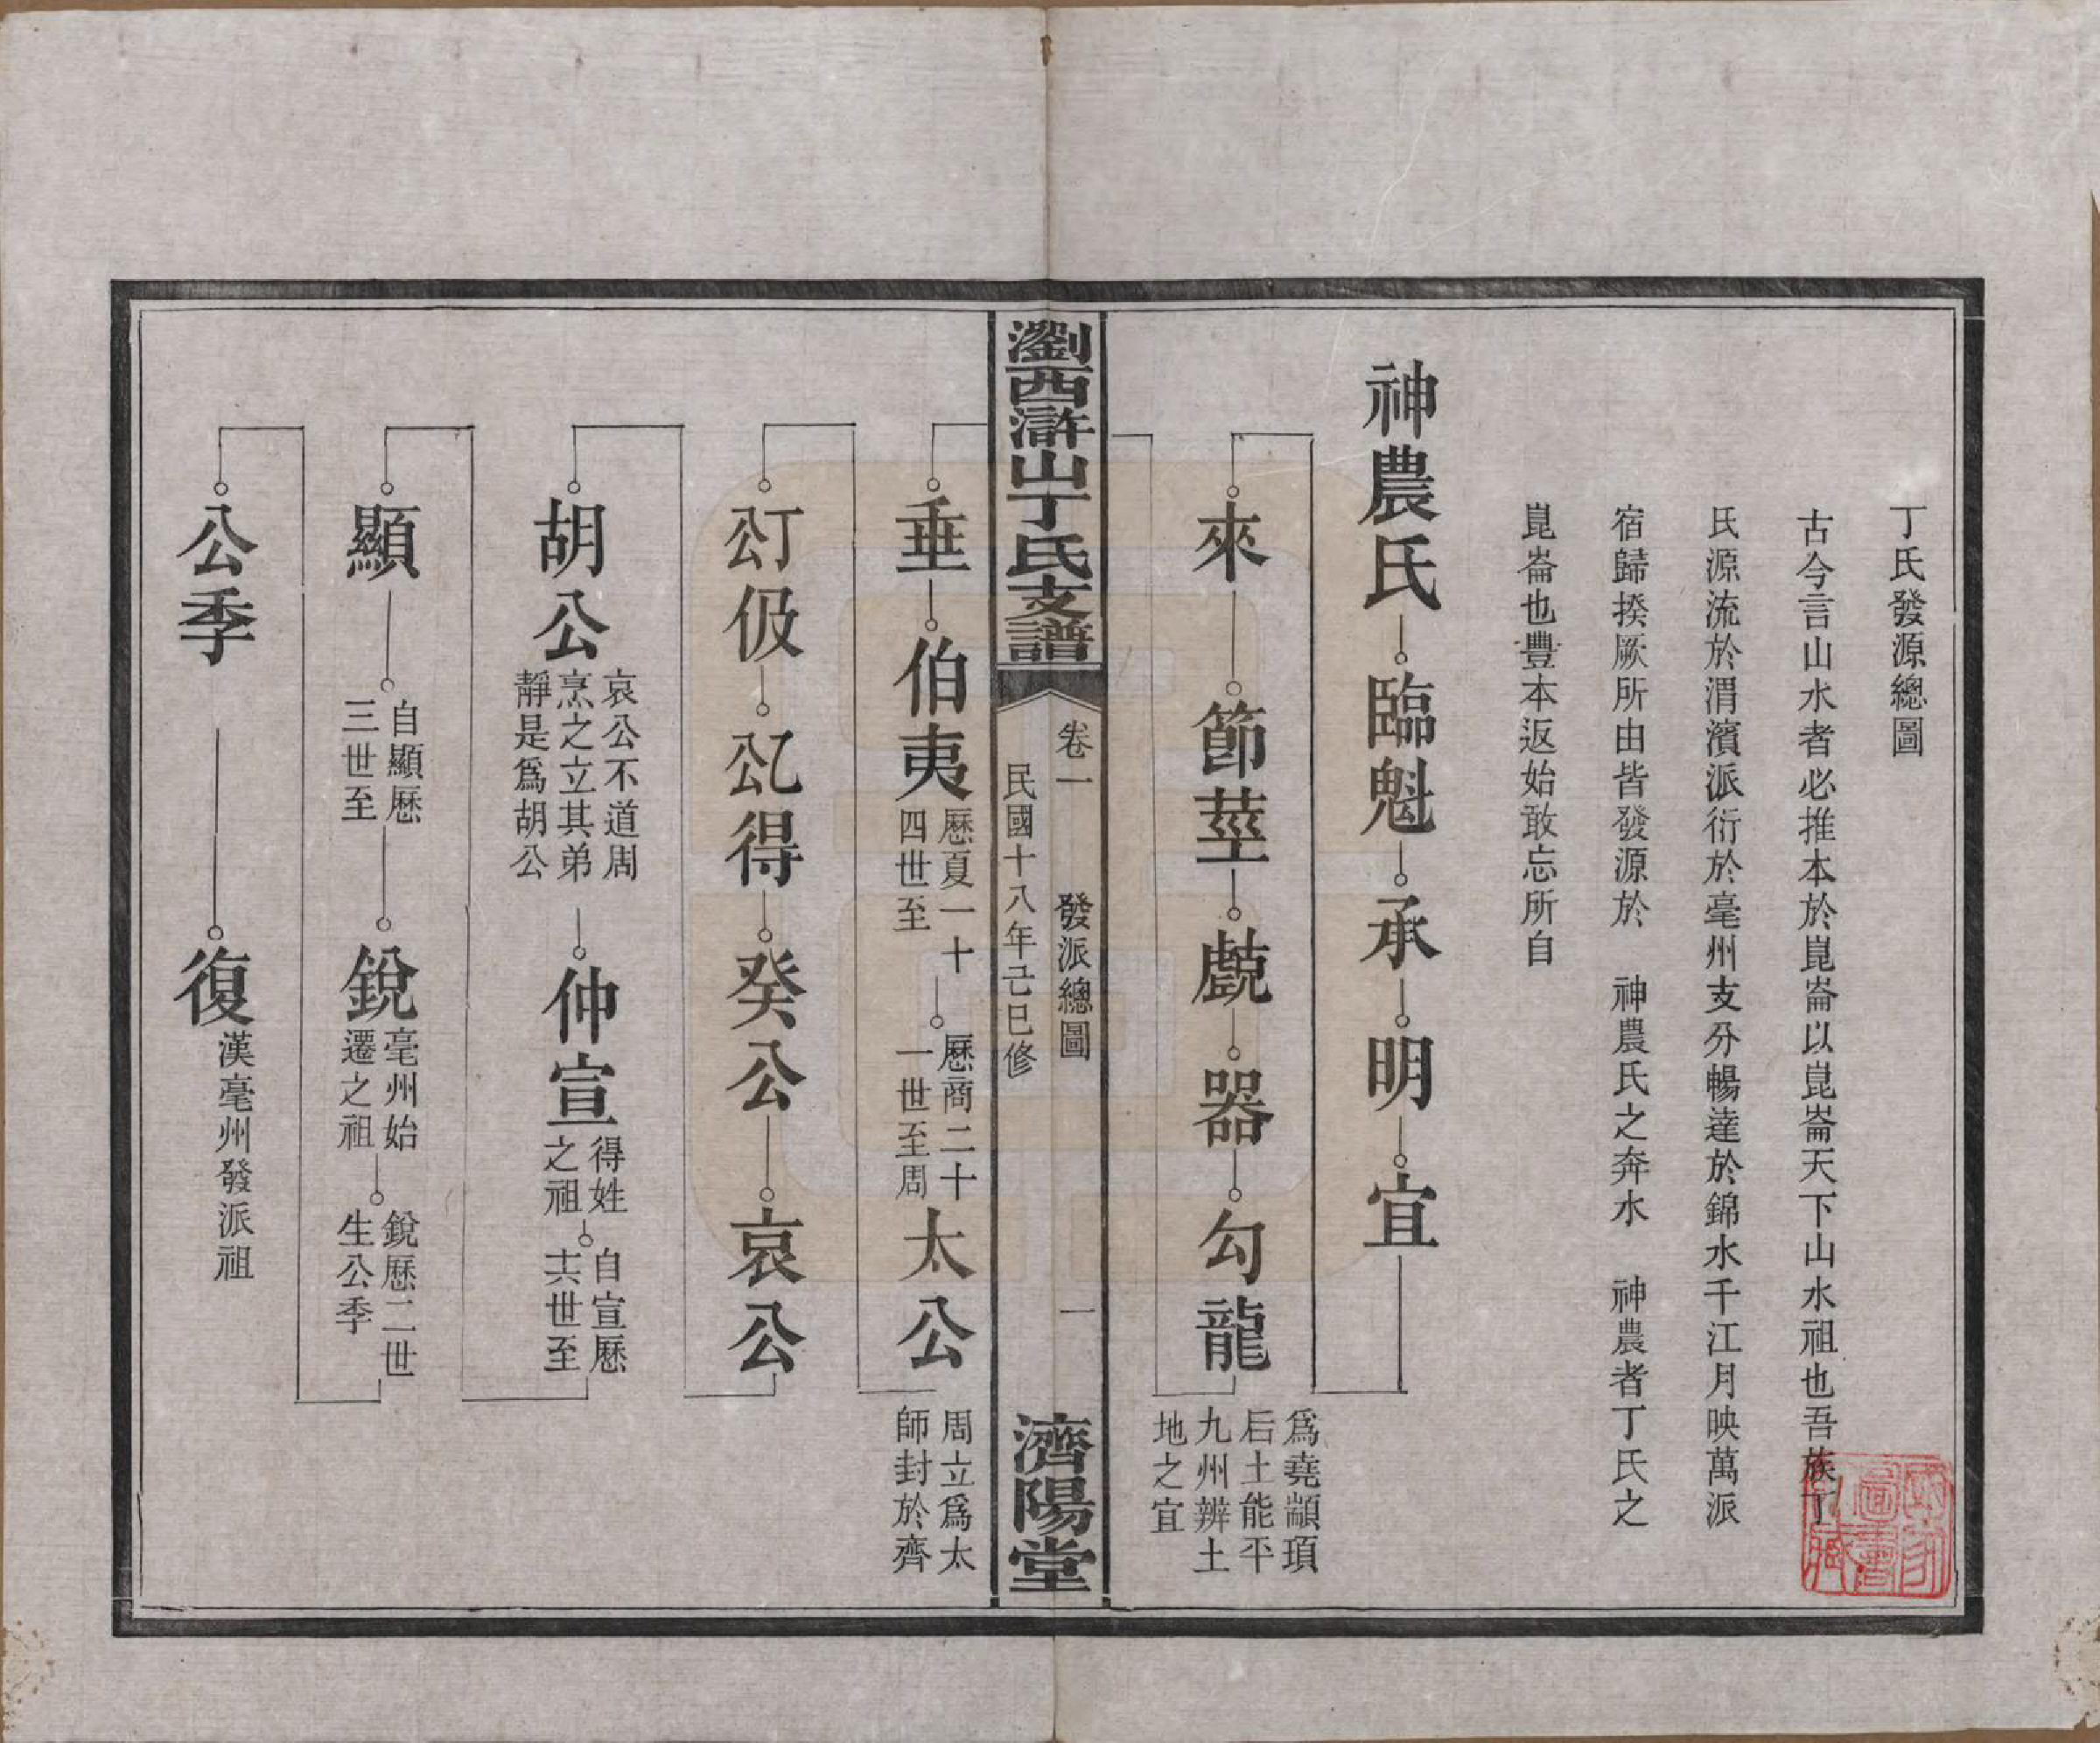 丁氏發源總圖
古今言山水者必推本於崑崙以崑崙天下山水祖也吾族丁
氏源流於渭濱派衍於亳州支分暢達於錦水千江月映萬派
宿歸揆厥所由皆發源於　神農氏之奔水　神農者丁氏之
崑崙也豐本返始敢忘所自
神農氏 臨魁 承 明 宜
來 節莖 戲 器 勾龍
爲堯顓頊
后土能平
九州辨土
地之宜
瀏西滸山丁氏支譜
卷一　發派總圖　一
民國十八年己巳修
濟陽堂
垂 伯夷
歷夏一十
四世至
歷商二十
一世至周
太公
周立爲太
師封於齊
丁公伋 乙公得 癸公 哀公
胡公
哀公不道周
烹之立其弟
靜是爲胡公
仲宣
得姓
之祖
自宣歷
六世至
顯
自顯歷
三世至
銳
亳州始
遷之祖
銳歷二世
生公季
公季 復
漢亳州發派祖